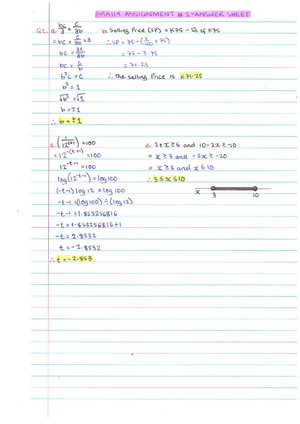 MA114 ASSIGNMENT #1-ANSWER SHEET
Q1. a. bc/3 = c/3b
= bc = c/3b × 3
bc = 3c/3b
bc = c/b
b²c = c
b² = 1
√b² = √1
b = ±1
∴ b = ±1
b. Selling Price (SP) = K75 - 5% of K75
∴ SP = 75 - (5/100 × 75)
= 75 - 3.75
= 71.25
∴ The selling Price is K71.25
c. = 100
= 12^-(t+1) = 100
12^-t-1 = 100
log(12^-t-1) = log100
(-t-1) log12 = log100
-t-1 = (log100) ÷ (log12)
-t-1 = 1.853256816
-t = 1.853256816+1
-t = 2.8532
t = -2.8532
∴ t = -2.853
d. 2+x ≥ 5 and 10-2x ≥ -10
= x ≥ 3 and -2x ≥ -20
= x ≥ 3 and x ≤ 10
∴ 3 ≤ x ≤ 10
x 3 10